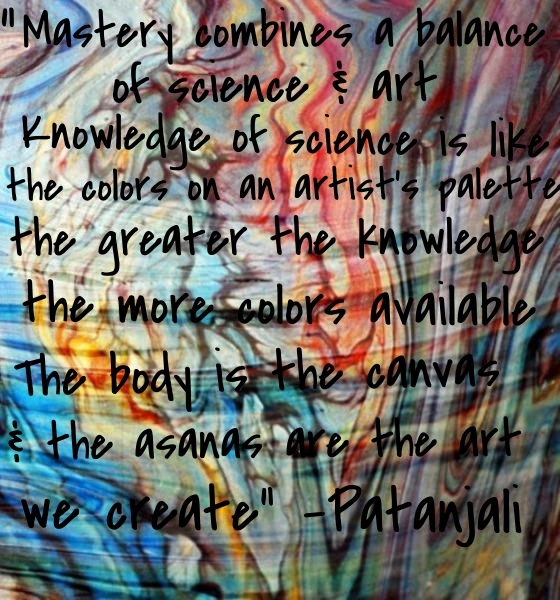 "Mastery combines a balance
of science & art
Knowledge of science is like
the colors on an artist's palette
the greater the knowledge
the more colors available
The body is the canvas
& the asanas are the art
we create" -Patanjali